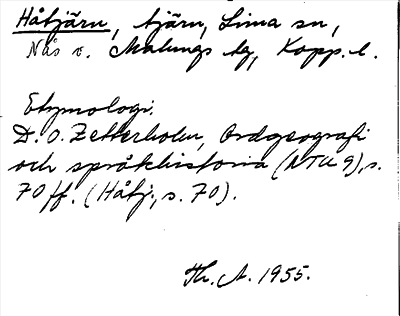 Håtjärn, tjärn, Lima sn,
Nås v. Malungs tg, Kopp. l.
Etymologi.
D. O. Zetterholm, Ordgeografi
och språkhistoria (NTU 9), s.
70 ff. (Håtj., s. 70).
Th. A. 1955.